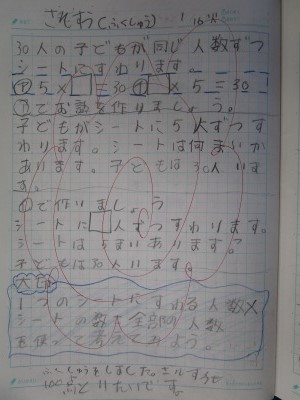 さんすう(ふくしゅう)
30人の子どもが同じ人数ずつ
シートにすわります。
㋐5×□=30 ㋑□×5=30
㋐でお話を作りましょう。
子どもがシートに5人ずつす
わります。シートは何まいか
あります。子どもは30人いま
す。
㋑で作りましょう
シートに□人ずつすわります。
シートは5まいあります。
子どもは30人います。
1つのシートにすわる人数×
シートの数=全部の人数
を使って考えてみよう。
ふくしゅうをしました。
100点
とりたいです。